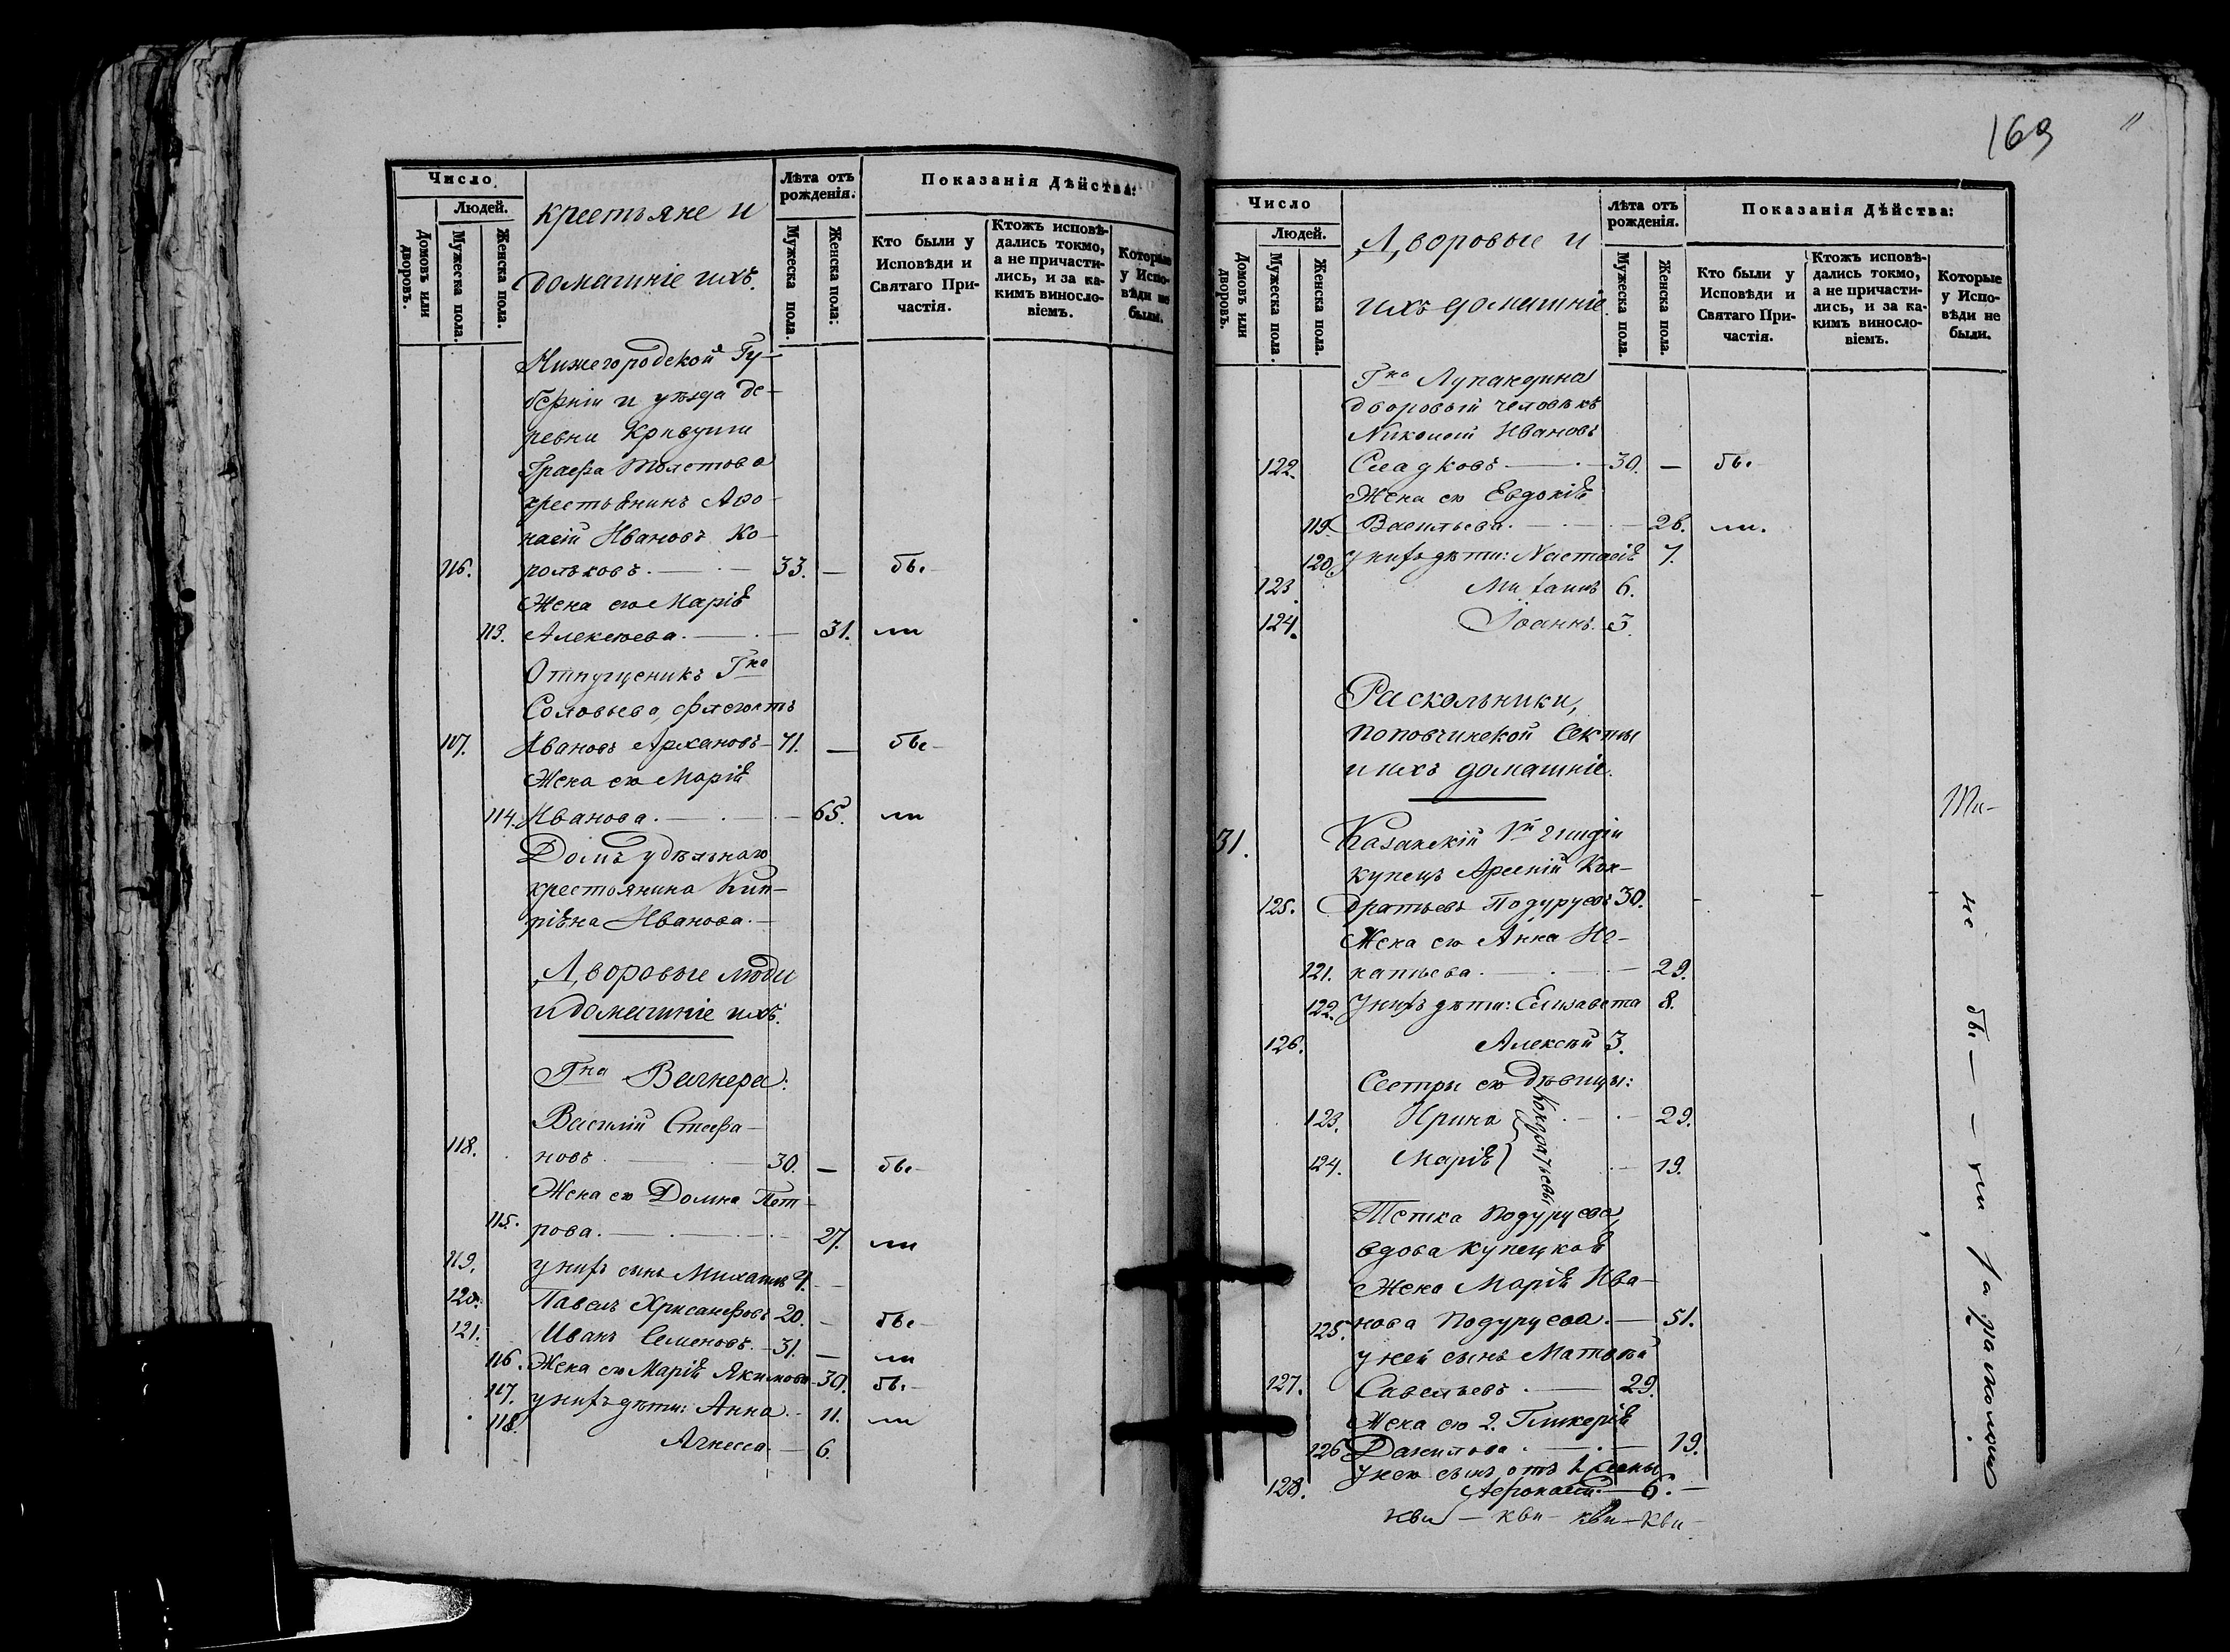 Число
Людей.
Домовъ или дворовъ.
Мужеска пола.
Женска пола.
крестьяне и
домашніе ихъ.
Лѣта отъ рожденія.
Мужеска пола.
Женска пола:
Показанія Дѣйства:
Кто были у Исповѣди и Святаго Причастія.
Ктожъ исповѣдались токмо, а не причастились, и за какимъ винословіемъ.
Которые у Исповѣди не были.
Нижегородской Гу-
берніи и уѣзда де-
ревни Кривуши
Графа Толстова
крестьянинъ Афо-
насій Ивановъ Ко-
116. рольковъ. 33. — бы-
Жена его Марія
113. Алексѣева. 31. ли
Отпущеникъ Гна
Соловьева,
117. Ивановъ 71. — бы-
Жена его Марія
114. Иванова. 65. ли
Домъ удѣльнаго
крестьянина Кип-
ріяна Иванова.
Дворовые люди
и домашніе ихъ.
Гна Вагнера:
Василій Стефа-
118. новъ 30. — бы-
Жена его Домна Пет-
115. рова. 27. ли
119. у нихъ сынъ Михаилъ 4.
120. Павелъ Хрисанфовъ 20. — бы-
121. Иванъ Семеновъ. 31. — ли
116. Жена его Марія Якимова 30. бы-
117. у нихъ дѣти: Анна. 11. ли
118. Агнесса. 6.
169
Число
Людей.
Домовъ или дворовъ.
Мужеска пола.
Женска пола.
Дворовые и
ихъ домашніе.
Лѣта отъ рожденія.
Мужеска пола.
Женска пола.
Показанія Дѣйства:
Кто были у Исповѣди и Святаго Причастія.
Ктожъ исповѣдались токмо, а не причастились, и за какимъ винословіемъ.
Которые у Исповѣди не были.
Гна Лупандина
дворовый человѣкъ
Николай Ивановъ
122. Сладковъ 30. — бы-
Жена его Евдокія
119. Васильева. 26. ли.
120. у нихъ дѣти: Настасія 7.
123. Михаилъ 6.
124. Іоаннъ. 3.
Раскольники,
поповчинской секты
и ихъ домашніе.
31. Казанскій 1й гильдіи
купецъ Арсеній Кон-
125. дратьевъ Подуруевъ 30.
Жена его Анна Иг-
121. натьева 29.
122. у нихъ дѣти: Елизавета 8.
126. Алексѣй 3.
Сестры его дѣвицы:
123. Ирина 29.
124. Марія 19.
Кондратьевы
Тетка Подуруева,
вдова купецкая
Жена Марія Ива-
125. нова Подуруева. 51.
у ней сынъ Матвѣй
127. Савельевъ 29.
Жена его 2. Гликерія
126. Данилова 19.
у него сынъ отъ 1 жены
128. Афонасій 6.
не бы — — ли за расколомъ